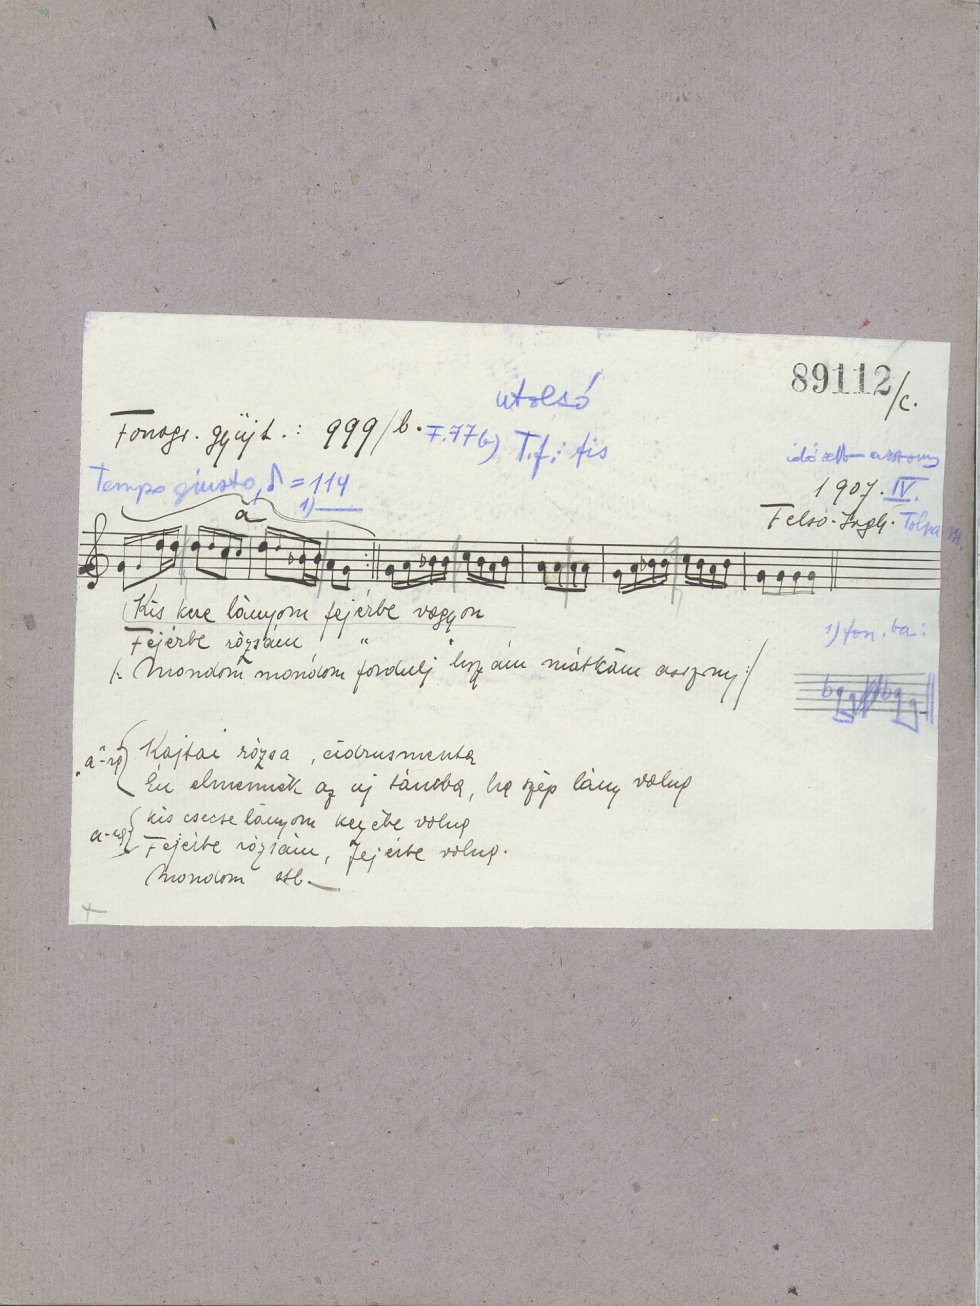 89112/c.
utolsó
Fonogr. gyüjt.: 999/b. F.77b) T.f.: fis
idősebb asszony
Tempo giusto, ♪ = 114
1907. IV.
1)
a
Felső-Iregh. Tolna m.
Kis kece lányom fejérbe vagyon
Fejérbe rózsám, " "
/: Mondom mondom fordulj hozzám mátkám asszony :/
1) fon.-ba:
"a"-ra { Kajtai rózsa, cidrusmenta
Én elmennék az új táncba, ha szép lány volna
a-ra { Kis csecse lányom kezébe volna
Fejérbe rózsám, fejérbe volna.
Mondom stb.